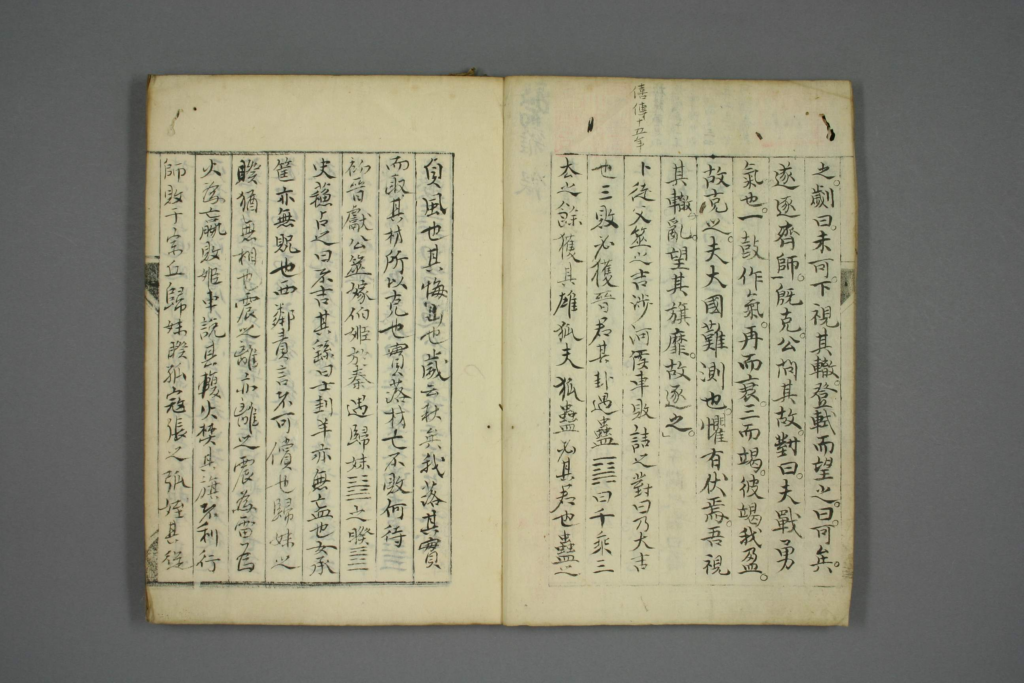 僖傳十五年
之劌曰未可下視其轍登軾而望之曰可矣
遂逐齊師既克公問其故對曰夫戰勇
氣也一鼓作氣再而衰三而竭彼竭我盈
故克之夫大國難測也懼有伏焉吾視
其轍亂望其旗靡故逐之
卜徒父筮之吉涉河侯車敗詰之對曰乃大吉
也三敗必獲晉君其卦遇蠱曰千乘三
去之餘獲其雄狐夫狐蠱必其君也蠱之
貞風也其悔山也歲云秋矣我落其實
而取其材所以克也實落材亡不敗何待
初晉獻公筮嫁伯姬於秦遇歸妹之睽
史蘇占之曰不吉其繇曰士刲羊亦無衁也女承
筐亦無貺也西鄰責言不可償也歸妹之
睽猶無相也震之離亦離之震為雷為
火為嬴敗姬車說其輹火焚其旗不利行
師敗于宗丘歸妹睽孤寇張之弧姪其從